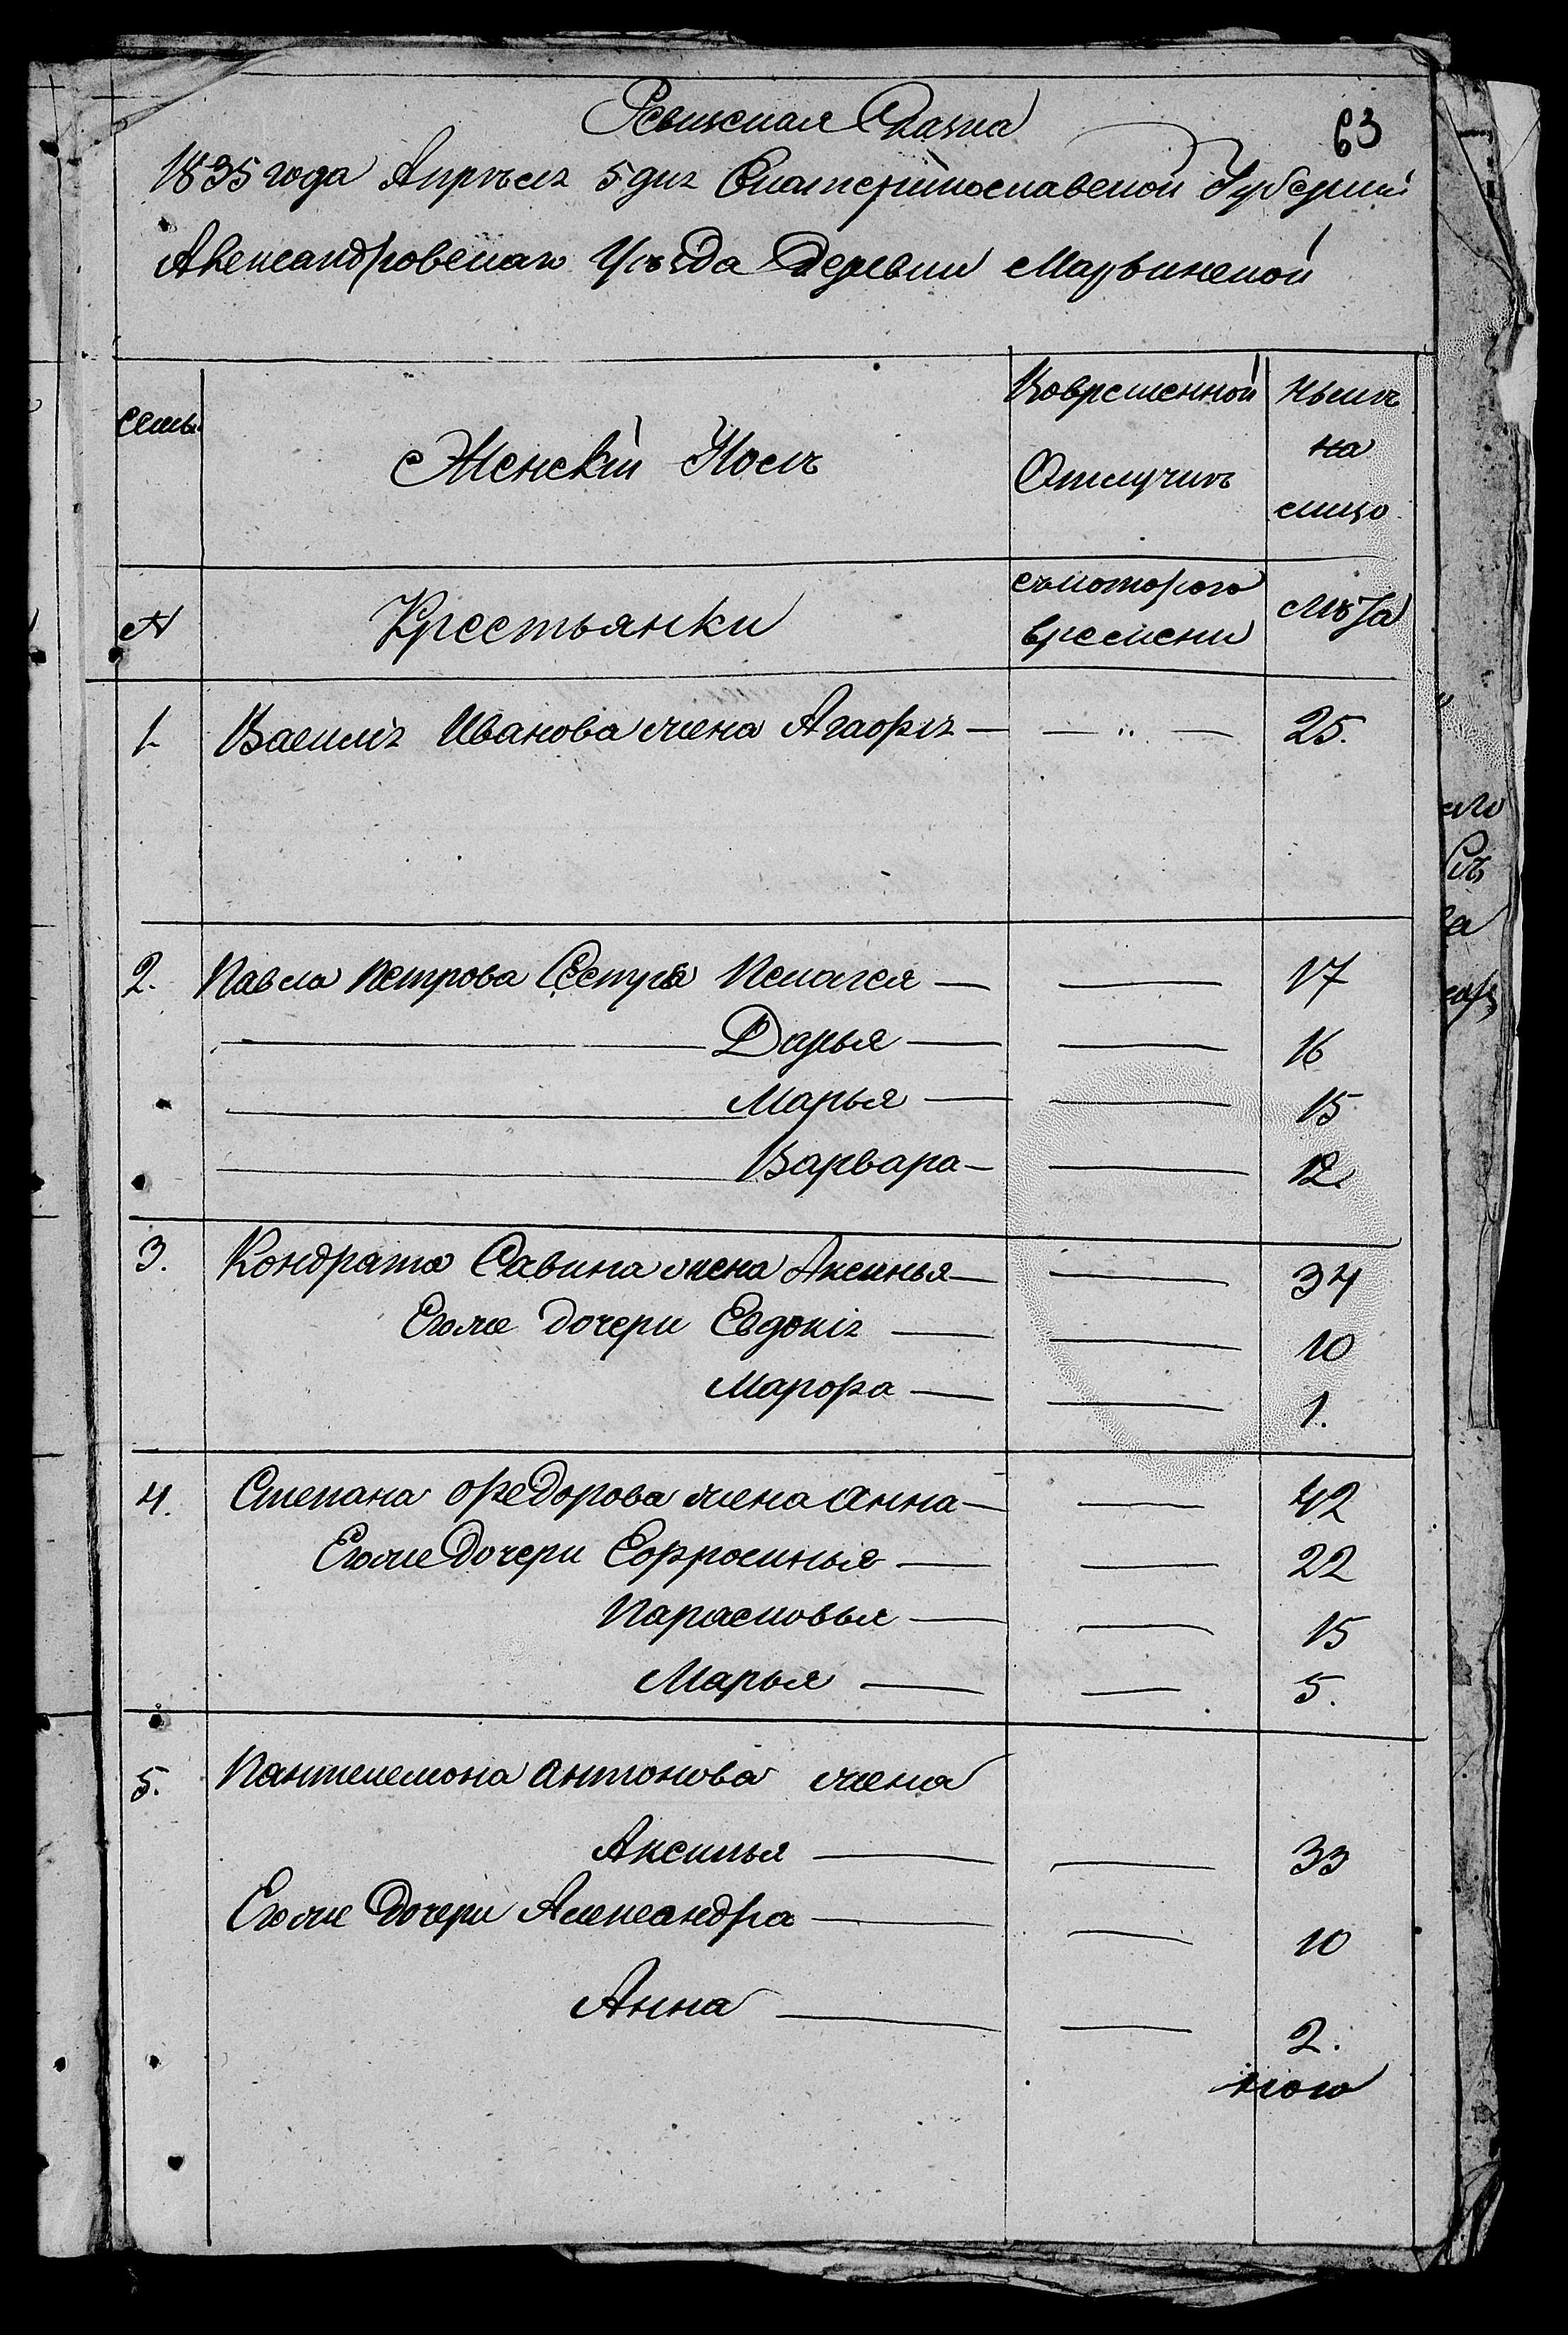 Ревизская Сказка
63
1835 года Апрѣля 5 дня Екатеринославской Губернии
Александровскаго Уѣзда Деревни Марвинской
семьи
Женскій Полъ
Вовременной
Отлучкѣ
Нынѣ
на
лицо
№
Крестьянки
съкоторого
времени
Лѣта
1. Василія Иванова жена Агафія — — " — 25.
2. Павла Петрова Сестры Пелагея — — 17
Дарья — — 16
Марья — — 15
Варвара — — 12.
3. Кондрата Савина жена Аксинья — — 34
Егоже дочери Евдокія — — 10
Марфа — — 1.
4. Степана Федорова жена Анна — — 42
Егоже Дочери Ефросинья — — 22
Парасковья — — 15
Марья — — 5.
5. Пантелемона Антонова жена
Аксинья — — 33
Егоже Дочери Александра — — 10
Анна — — 2.
итого